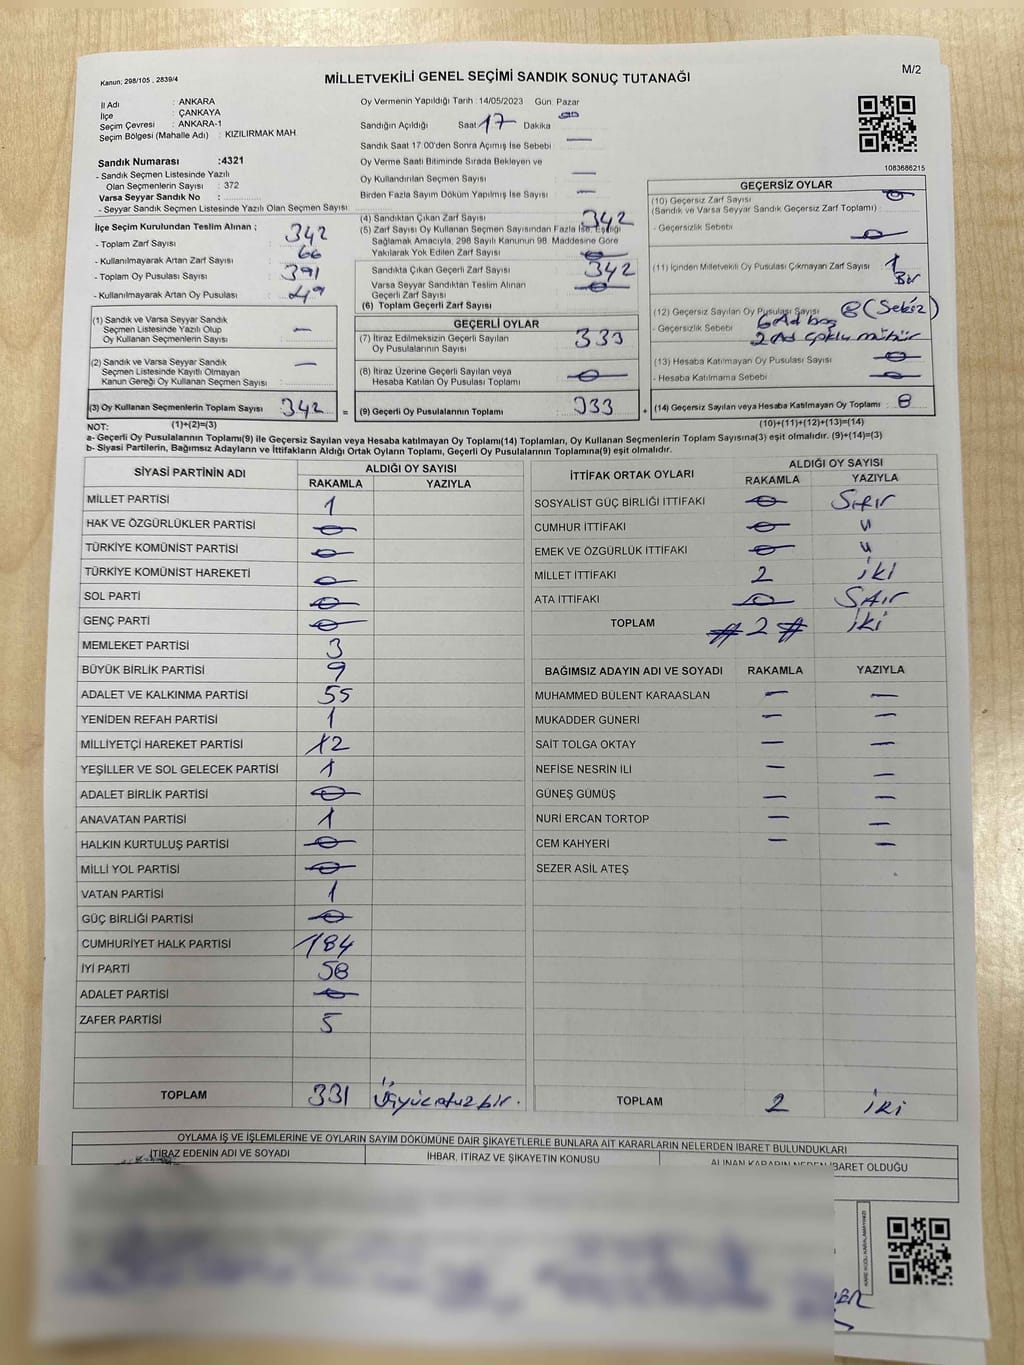 Kanun; 298/105 , 2839/4
MİLLETVEKİLİ GENEL SEÇİMİ SANDIK SONUÇ TUTANAĞI
M/2
İl Adı : ANKARA
İlçe : ÇANKAYA
Seçim Çevresi : ANKARA-1
Seçim Bölgesi (Mahalle Adı) : KIZILIRMAK MAH
Sandık Numarası :4321
- Sandık Seçmen Listesinde Yazılı
Olan Seçmenlerin Sayısı : 372
Varsa Seyyar Sandık No :
- Seyyar Sandık Seçmen Listesinde Yazılı Olan Seçmen Sayısı:
Oy Vermenin Yapıldığı Tarih : 14/05/2023 Gün: Pazar
Sandığın Açıldığı Saat 17 Dakika 00
Sandık Saat 17:00'den Sonra Açımış İse Sebebi —
Oy Verme Saati Bitiminde Sırada Bekleyen ve
Oy Kullandırılan Seçmen Sayısı —
Birden Fazla Sayım Döküm Yapılmış İse Sayısı —
1083686215
İlçe Seçim Kurulundan Teslim Alınan ;
- Toplam Zarf Sayısı 342
- Kullanılmayarak Artan Zarf Sayısı 66
- Toplam Oy Pusulası Sayısı 391
- Kullanılmayarak Artan Oy Pusulası 49
(1) Sandık ve Varsa Seyyar Sandık
Seçmen Listesinde Yazılı Olup
Oy Kullanan Seçmenlerin Sayısı —
(2) Sandık ve Varsa Seyyar Sandık
Seçmen Listesinde Kayıtlı Olmayan
Kanun Gereği Oy Kullanan Seçmen Sayısı —
(3) Oy Kullanan Seçmenlerin Toplam Sayısı 342 =
(1)+(2)=(3)
(4) Sandıktan Çıkan Zarf Sayısı 342
(5) Zarf Sayısı Oy Kullanan Seçmen Sayısından Fazla İse, Eşitliği
Sağlamak Amacıyla, 298 Sayılı Kanunun 98. Maddesine Göre
Yakılarak Yok Edilen Zarf Sayısı 0
Sandıkta Çıkan Geçerli Zarf Sayısı 342
Varsa Seyyar Sandıktan Teslim Alınan
Geçerli Zarf Sayısı 0
(6) Toplam Geçerli Zarf Sayısı
GEÇERLİ OYLAR
(7) İtiraz Edilmeksizin Geçerli Sayılan
Oy Pusulalarının Sayısı 333
(8) İtiraz Üzerine Geçerli Sayılan veya
Hesaba Katılan Oy Pusulası Toplamı 0
(9) Geçerli Oy Pusulalarının Toplamı 333 +
GEÇERSİZ OYLAR
(10) Geçersiz Zarf Sayısı 0
(Sandık ve Varsa Seyyar Sandık Geçersiz Zarf Toplamı) :
- Geçersizlik Sebebi 0
(11) İçinden Milletvekili Oy Pusulası Çıkmayan Zarf Sayısı 1
Bir
(12) Geçersiz Sayılan Oy Pusulası Sayısı 8 (Sekiz)
- Geçersizlik Sebebi 6 Ad boş
2 Ad çoklu mühür
(13) Hesaba Katılmayan Oy Pusulası Sayısı 0
- Hesaba Katılmama Sebebi 0
(14) Geçersiz Sayılan veya Hesaba Katılmayan Oy Toplamı : 8
(10)+(11)+(12)+(13)=(14)
NOT:
a- Geçerli Oy Pusulalarının Toplamı(9) ile Geçersiz Sayılan veya Hesaba katılmayan Oy Toplamı(14) Toplamları, Oy Kullanan Seçmenlerin Toplam Sayısına(3) eşit olmalıdır. (9)+(14)=(3)
b- Siyasi Partilerin, Bağımsız Adayların ve İttifakların Aldığı Ortak Oyların Toplamı, Geçerli Oy Pusulalarının Toplamına(9) eşit olmalıdır.
SİYASİ PARTİNİN ADI ALDIĞI OY SAYISI
RAKAMLA YAZIYLA
MİLLET PARTİSİ 1
HAK VE ÖZGÜRLÜKLER PARTİSİ 0
TÜRKİYE KOMÜNİST PARTİSİ 0
TÜRKİYE KOMÜNİST HAREKETİ 0
SOL PARTİ 0
GENÇ PARTİ 0
MEMLEKET PARTİSİ 3
BÜYÜK BİRLİK PARTİSİ 9
ADALET VE KALKINMA PARTİSİ 55
YENİDEN REFAH PARTİSİ 1
MİLLİYETÇİ HAREKET PARTİSİ 12
YEŞİLLER VE SOL GELECEK PARTİSİ 1
ADALET BİRLİK PARTİSİ 0
ANAVATAN PARTİSİ 1
HALKIN KURTULUŞ PARTİSİ 0
MİLLİ YOL PARTİSİ 0
VATAN PARTİSİ 1
GÜÇ BİRLİĞİ PARTİSİ 0
CUMHURİYET HALK PARTİSİ 184
İYİ PARTİ 58
ADALET PARTİSİ 0
ZAFER PARTİSİ 5
TOPLAM 331 Üçyüzotuzbir.
İTTİFAK ORTAK OYLARI ALDIĞI OY SAYISI
RAKAMLA YAZIYLA
SOSYALİST GÜÇ BİRLİĞİ İTTİFAKI 0 Sıfır
CUMHUR İTTİFAKI 0 "
EMEK VE ÖZGÜRLÜK İTTİFAKI 0 "
MİLLET İTTİFAKI 2 iki
ATA İTTİFAKI 0 Sıfır
TOPLAM # 2 # iki
BAĞIMSIZ ADAYIN ADI VE SOYADI RAKAMLA YAZIYLA
MUHAMMED BÜLENT KARAASLAN — —
MUKADDER GÜNERİ — —
SAİT TOLGA OKTAY — —
NEFİSE NESRİN İLİ — —
GÜNEŞ GÜMÜŞ — —
NURİ ERCAN TORTOP — —
CEM KAHYERİ — —
SEZER ASİL ATEŞ
TOPLAM 2 iki
OYLAMA İŞ VE İŞLEMLERİNE VE OYLARIN SAYIM DÖKÜMÜNE DAİR ŞİKAYETLERLE BUNLARA AİT KARARLARIN NELERDEN İBARET BULUNDUKLARI
İTİRAZ EDENİN ADI VE SOYADI İHBAR, İTİRAZ VE ŞİKAYETİN KONUSU ALINAN KARARIN NEDEN İBARET OLDUĞU
KARE KODU KARALAMAYINIZ